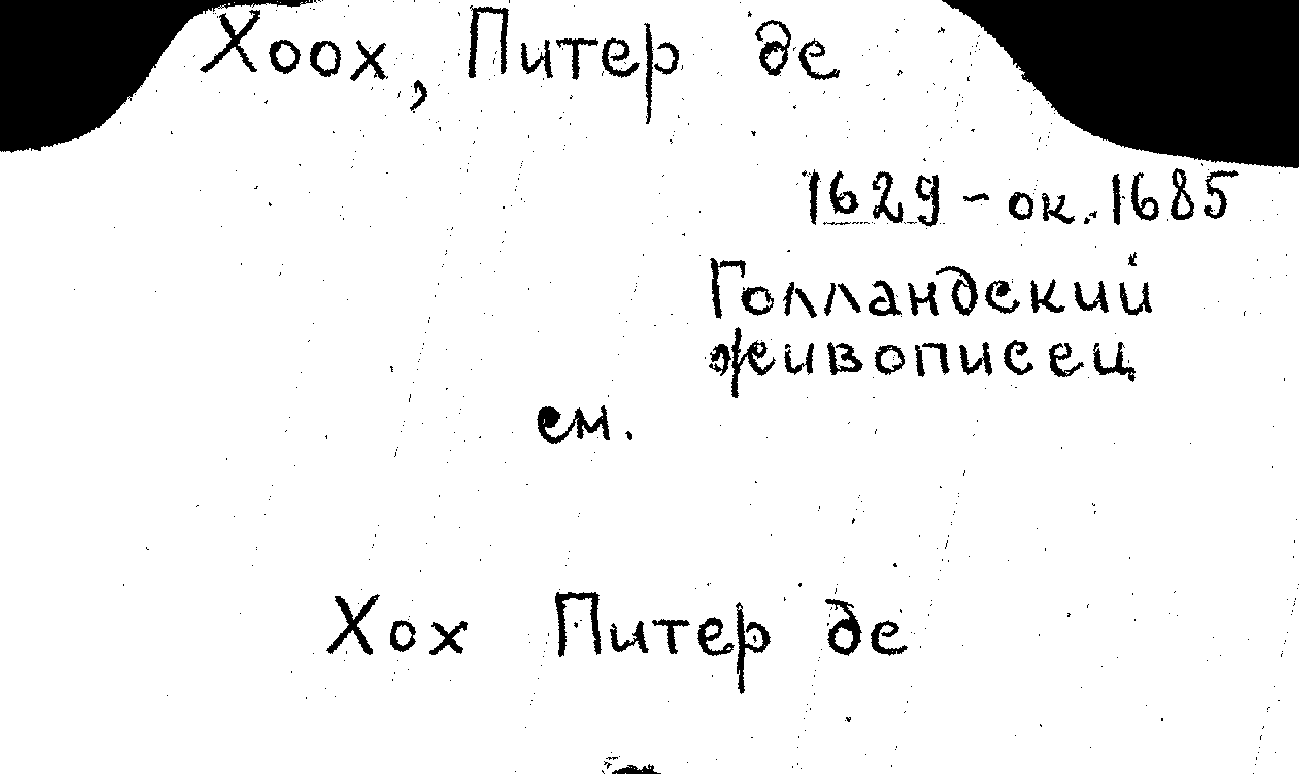 Хоох, Питер де
1629 – ок. 1685
Голландский
живописец
см.
Хох Питер де